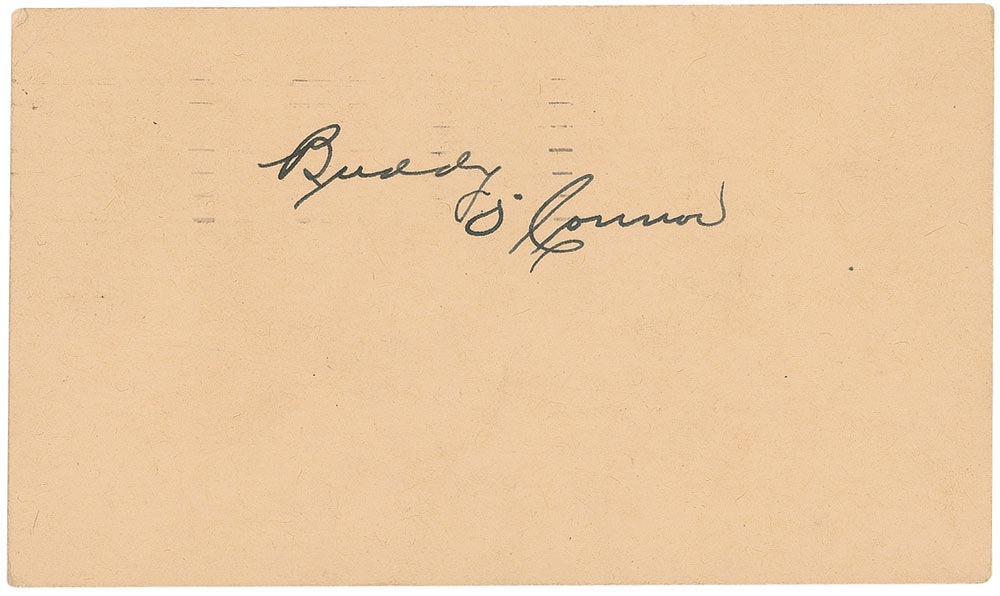 Buddy
O'Connor